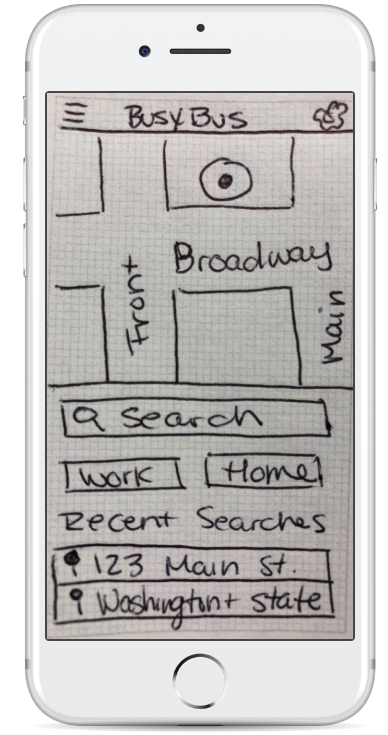 BusyBus
Broadway
Front
Main
Search
Work Home
Recent Searches
123 Main St.
Washington+ State